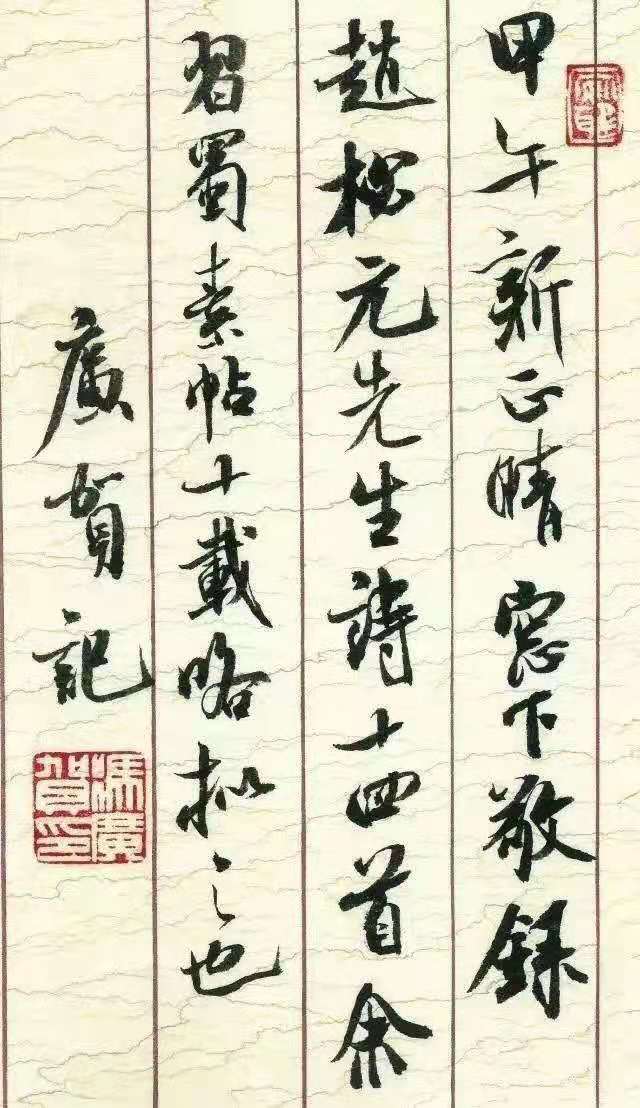 甲午新正晴窓下敬録
趙松元先生詩十四首余
習蜀素帖十載略拟之也
廣賀記
馮廣賀印